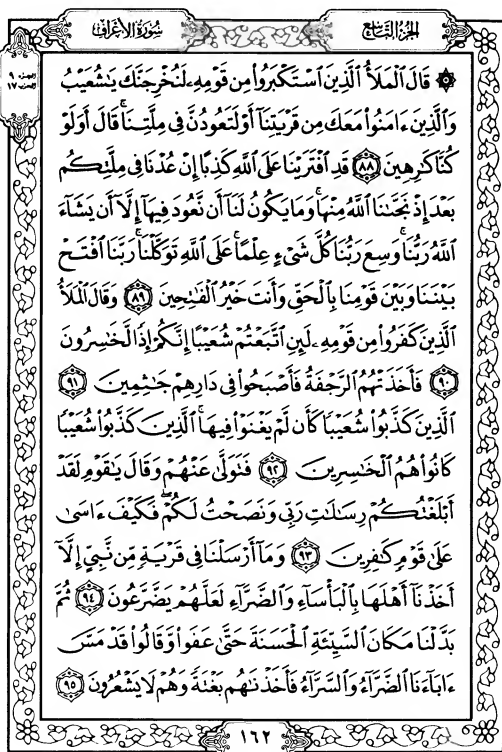 سُورَةُ الأَعْرَافِ
الجزء التاسع
الجزء ٩
الحزب ١٧
۞ قَالَ ٱلْمَلَأُ ٱلَّذِينَ ٱسْتَكْبَرُوا۟ مِن قَوْمِهِۦ لَنُخْرِجَنَّكَ يَـٰشُعَيْبُ
وَٱلَّذِينَ ءَامَنُوا۟ مَعَكَ مِن قَرْيَتِنَآ أَوْ لَتَعُودُنَّ فِى مِلَّتِنَا ۚ قَالَ أَوَلَوْ
كُنَّا كَـٰرِهِينَ ٨٨ قَدِ ٱفْتَرَيْنَا عَلَى ٱللَّهِ كَذِبًا إِنْ عُدْنَا فِى مِلَّتِكُم
بَعْدَ إِذْ نَجَّىٰنَا ٱللَّهُ مِنْهَا ۚ وَمَا يَكُونُ لَنَآ أَن نَّعُودَ فِيهَآ إِلَّآ أَن يَشَآءَ
ٱللَّهُ رَبُّنَا ۚ وَسِعَ رَبُّنَا كُلَّ شَىْءٍ عِلْمًا ۚ عَلَى ٱللَّهِ تَوَكَّلْنَا ۚ رَبَّنَا ٱفْتَحْ
بَيْنَنَا وَبَيْنَ قَوْمِنَا بِٱلْحَقِّ وَأَنتَ خَيْرُ ٱلْفَـٰتِحِينَ ٨٩ وَقَالَ ٱلْمَلَأُ
ٱلَّذِينَ كَفَرُوا۟ مِن قَوْمِهِۦ لَئِنِ ٱتَّبَعْتُمْ شُعَيْبًا إِنَّكُمْ إِذًا لَّخَـٰسِرُونَ
٩٠ فَأَخَذَتْهُمُ ٱلرَّجْفَةُ فَأَصْبَحُوا۟ فِى دَارِهِمْ جَـٰثِمِينَ ٩١
ٱلَّذِينَ كَذَّبُوا۟ شُعَيْبًا كَأَن لَّمْ يَغْنَوْا۟ فِيهَا ۚ ٱلَّذِينَ كَذَّبُوا۟ شُعَيْبًا
كَانُوا۟ هُمُ ٱلْخَـٰسِرِينَ ٩٢ فَتَوَلَّىٰ عَنْهُمْ وَقَالَ يَـٰقَوْمِ لَقَدْ
أَبْلَغْتُكُمْ رِسَـٰلَـٰتِ رَبِّى وَنَصَحْتُ لَكُمْ ۖ فَكَيْفَ ءَاسَىٰ
عَلَىٰ قَوْمٍ كَـٰفِرِينَ ٩٣ وَمَآ أَرْسَلْنَا فِى قَرْيَةٍ مِّن نَّبِىٍّ إِلَّآ
أَخَذْنَآ أَهْلَهَا بِٱلْبَأْسَآءِ وَٱلضَّرَّآءِ لَعَلَّهُمْ يَضَّرَّعُونَ ٩٤ ثُمَّ
بَدَّلْنَا مَكَانَ ٱلسَّيِّئَةِ ٱلْحَسَنَةَ حَتَّىٰ عَفَوا۟ وَّقَالُوا۟ قَدْ مَسَّ
ءَابَآءَنَا ٱلضَّرَّآءُ وَٱلسَّرَّآءُ فَأَخَذْنَـٰهُم بَغْتَةً وَهُمْ لَا يَشْعُرُونَ ٩٥
١٦٢